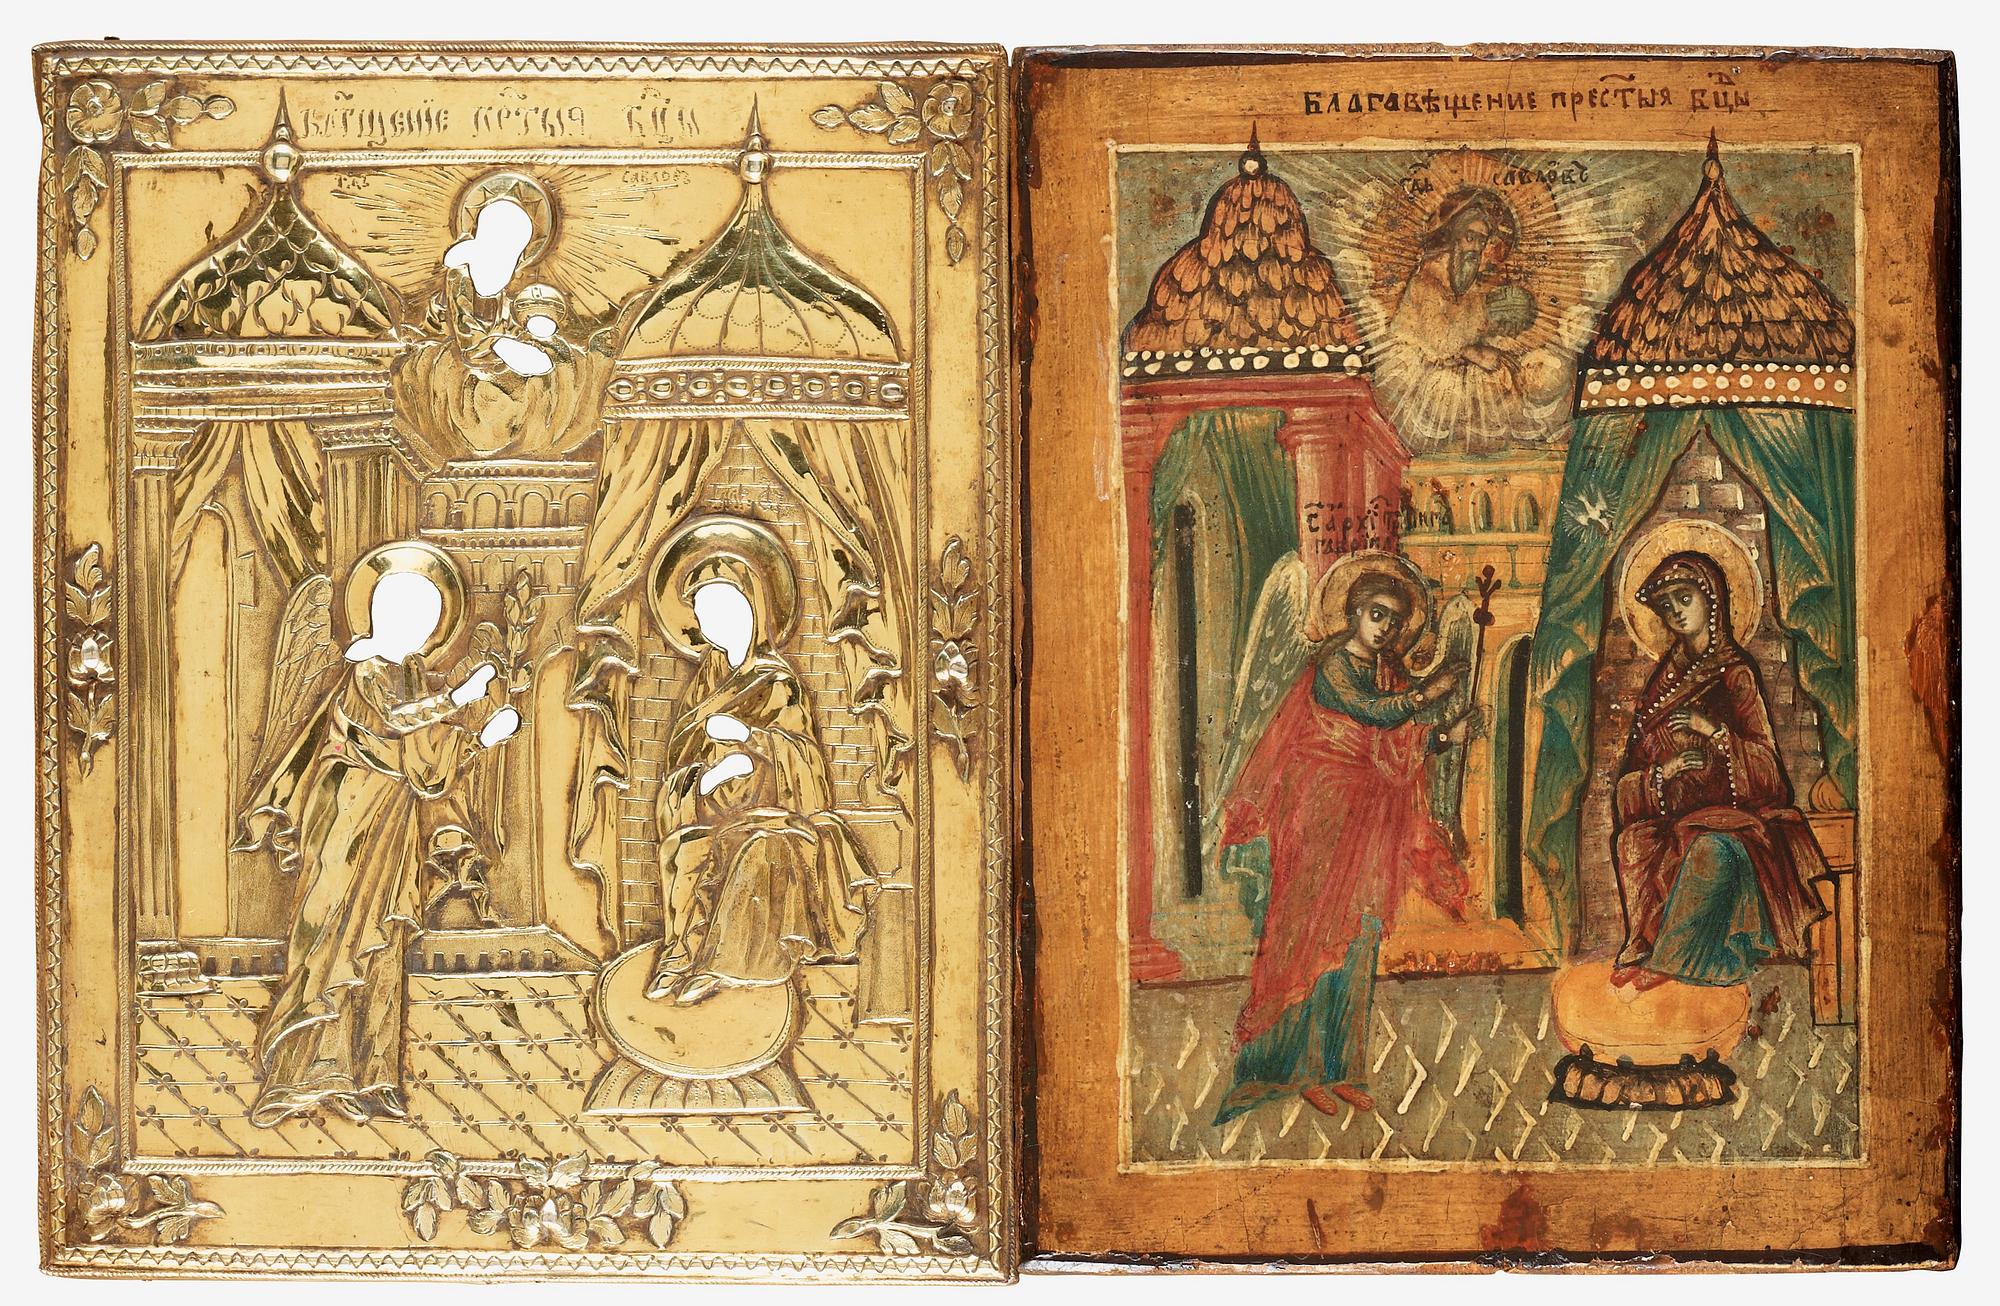 БЛГ҃ЩЕНIЕ ПР҃ТЫЯ Б҃ЦЫ
Г҃ДЬ САВАОѲЪ
БЛАГАВѢЩЕНИЕ ПРЕС҃ТЫЯ Б҃ЦЫ
Г҃ДЬ САВАОѲЪ
С҃ АРХ
ГАВРИЛ